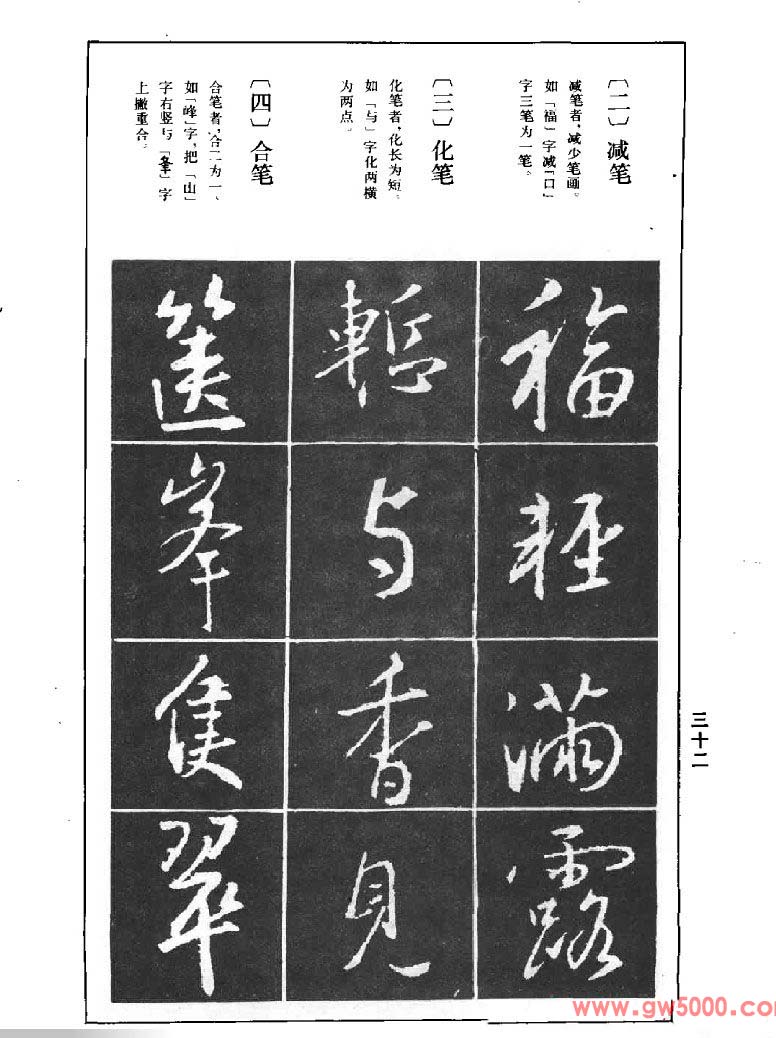 〔二〕减笔
减笔者，减少笔画。
如「福」字减「口」
字三笔为一笔。
〔三〕化笔
化笔者，化长为短。
如「与」字化两横
为两点。
〔四〕合笔
合笔者，合二为一、
如「峰」字，把「山」
字右竖与「夆」字
上撇重合。
福
轻
满
露
暂
与
香
见
峯
隻
翠
三十二
www.gw5000.com